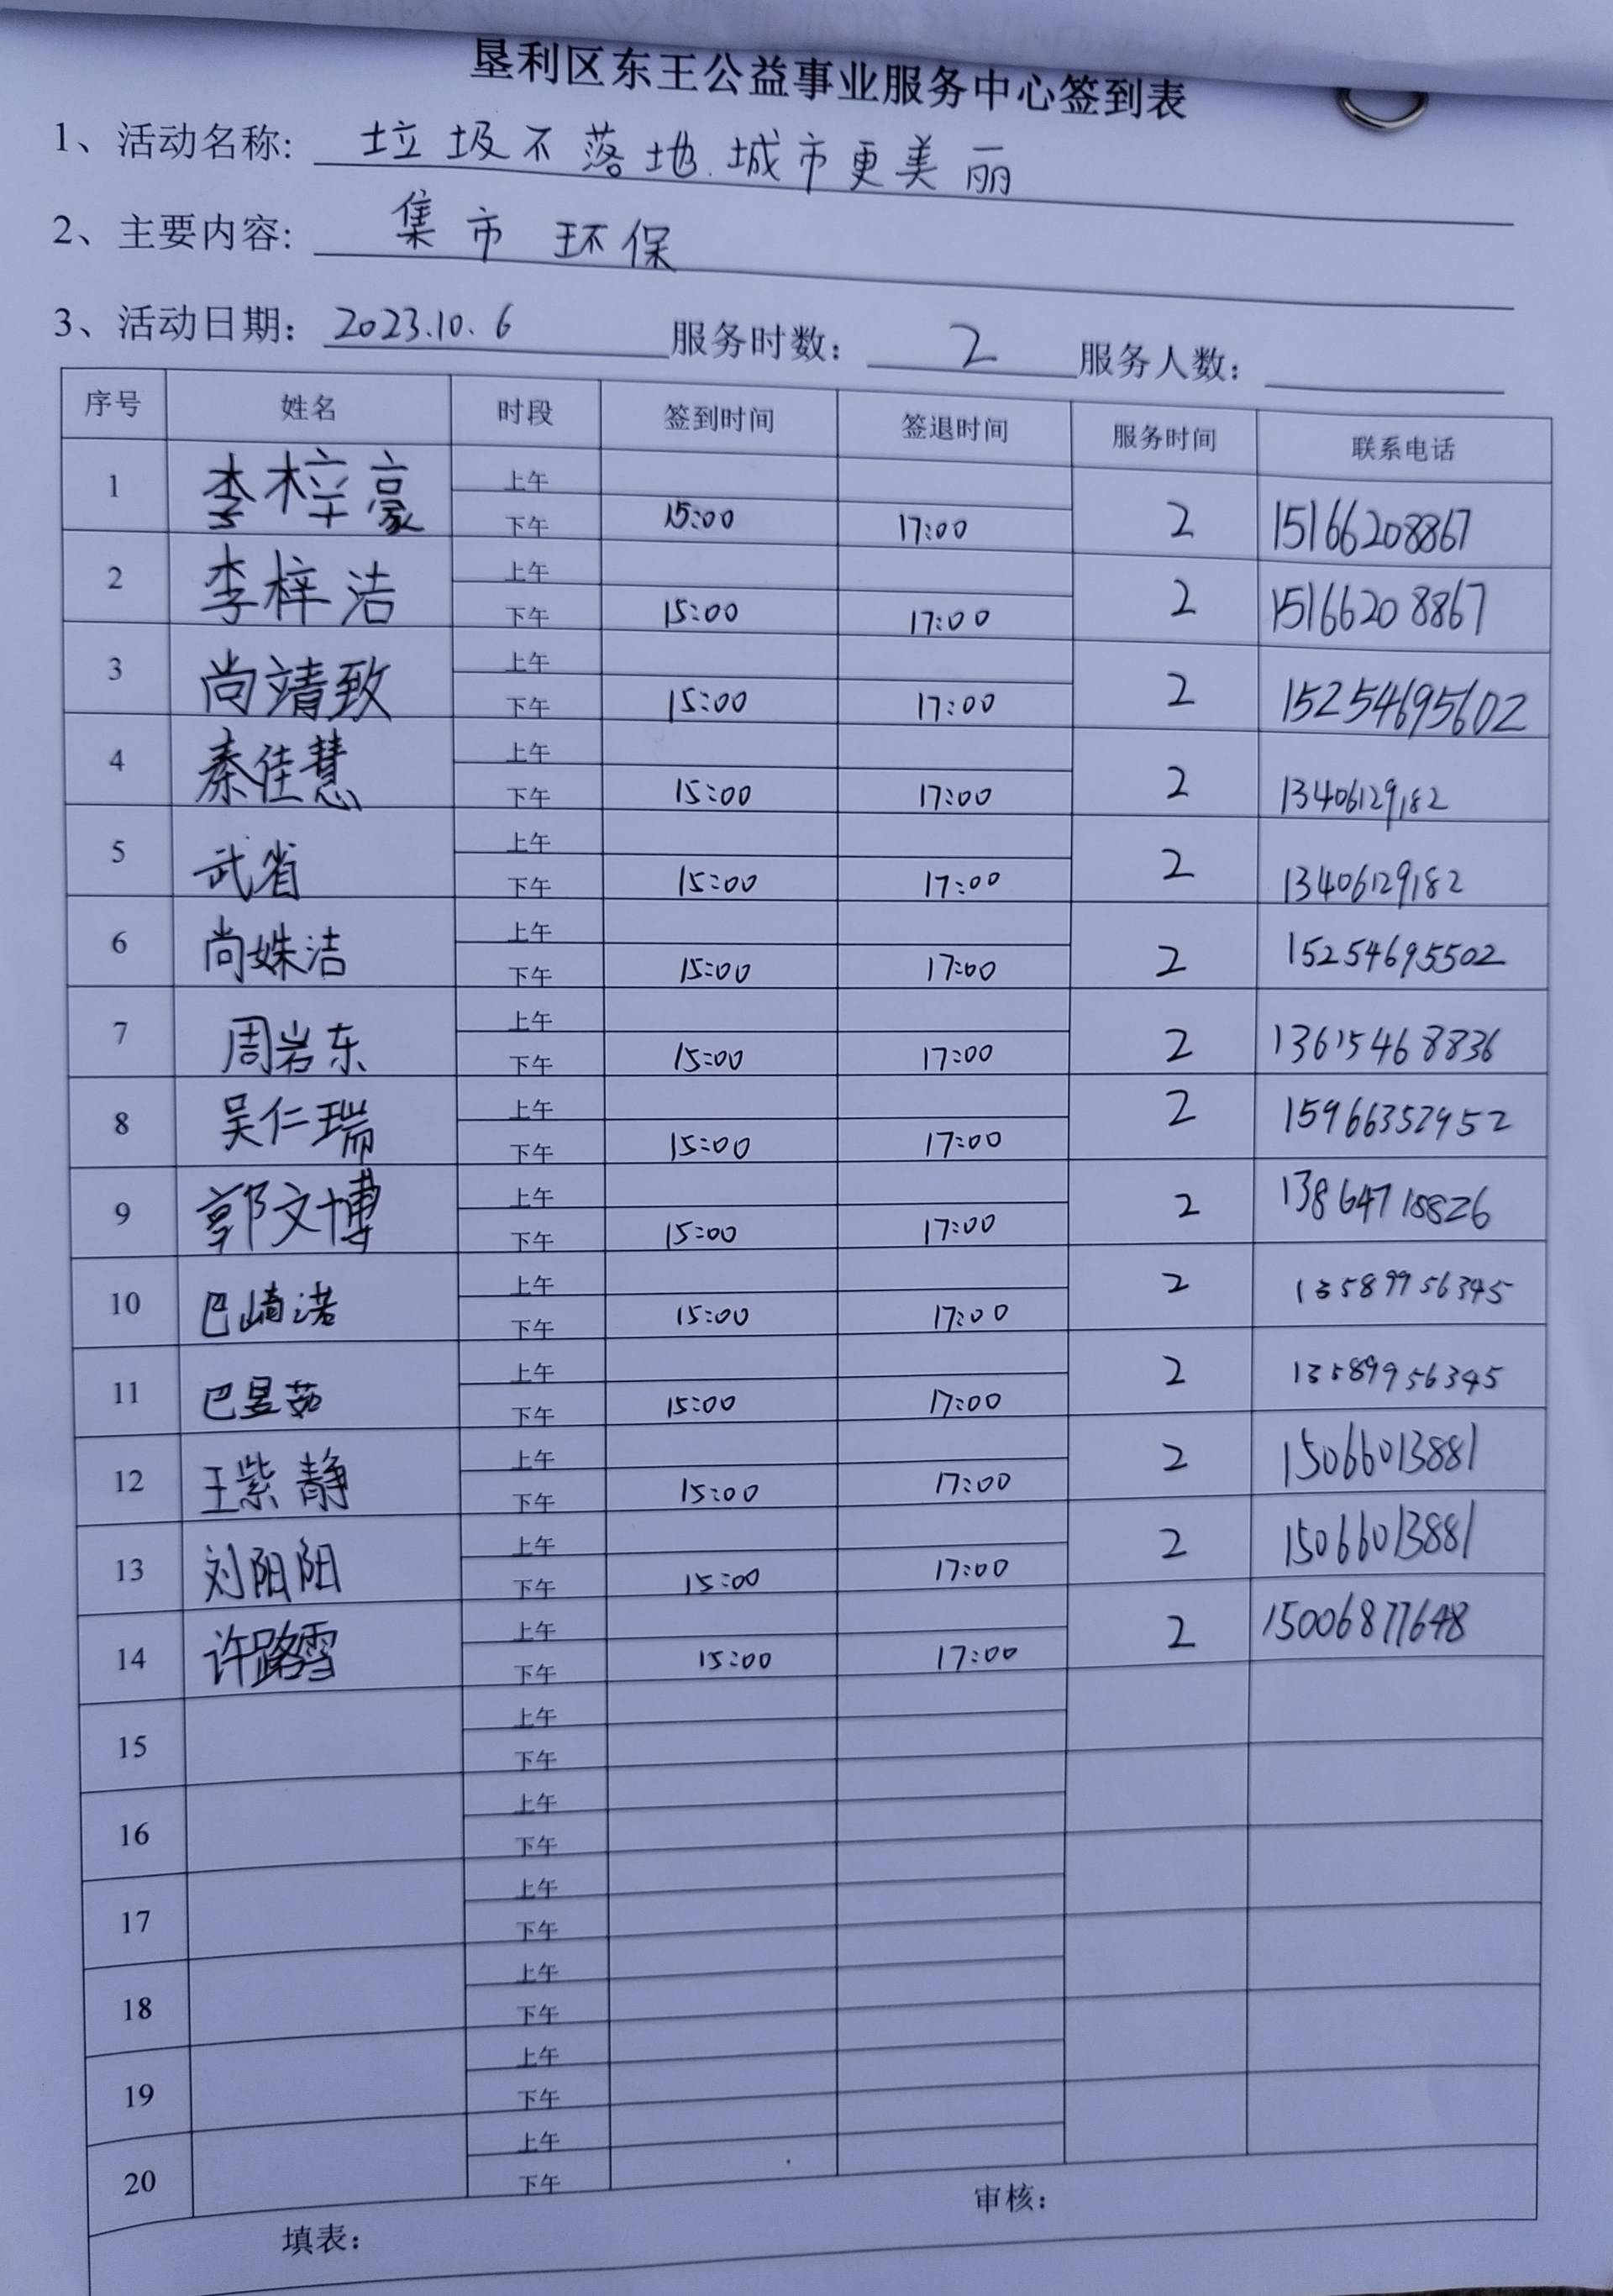 垦利区东王公益事业服务中心签到表
1、活动名称: 垃圾不落地.城市更美丽
2、主要内容: 集市环保
3、活动日期: 2023.10.6 服务时数: 2 服务人数:
序号 姓名 时段 签到时间 签退时间 服务时间 联系电话
1 李梓豪 上午 2 15166208867
下午 15:00 17:00
2 李梓洁 上午 2 15166208867
下午 15:00 17:00
3 尚靖致 上午 2 15254695602
下午 15:00 17:00
4 秦佳慧 上午 2 13406129182
下午 15:00 17:00
5 武省 上午 2 13406129182
下午 15:00 17:00
6 尚姝洁 上午 2 15254695502
下午 15:00 17:00
7 周岩东 上午 2 13615468836
下午 15:00 17:00
8 吴仁瑞 上午 2 15966352952
下午 15:00 17:00
9 郭文博 上午 2 13864718826
下午 15:00 17:00
10 巴崎诺 上午 2 13589956345
下午 15:00 17:00
11 巴昱茹 上午 2 13589956345
下午 15:00 17:00
12 王紫静 上午 2 15066013881
下午 15:00 17:00
13 刘阳阳 上午 2 15066013881
下午 15:00 17:00
14 许路雪 上午 2 15006877648
下午 15:00 17:00
15 上午
下午
16 上午
下午
17 上午
下午
18 上午
下午
19 上午
下午
20 上午
下午
填表: 审核: